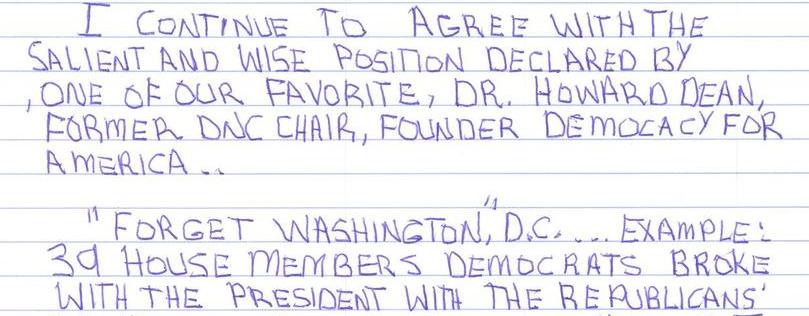 I CONTINUE TO AGREE WITH THE
SALIENT AND WISE POSITION DECLARED BY
, ONE OF OUR FAVORITE, DR. HOWARD DEAN,
FORMER DNC CHAIR, FOUNDER DEMOCACY FOR
AMERICA ..
"FORGET WASHINGTON," D.C. ... EXAMPLE:
39 HOUSE MEMBERS DEMOCRATS BROKE
WITH THE PRESIDENT WITH THE REPUBLICANS'